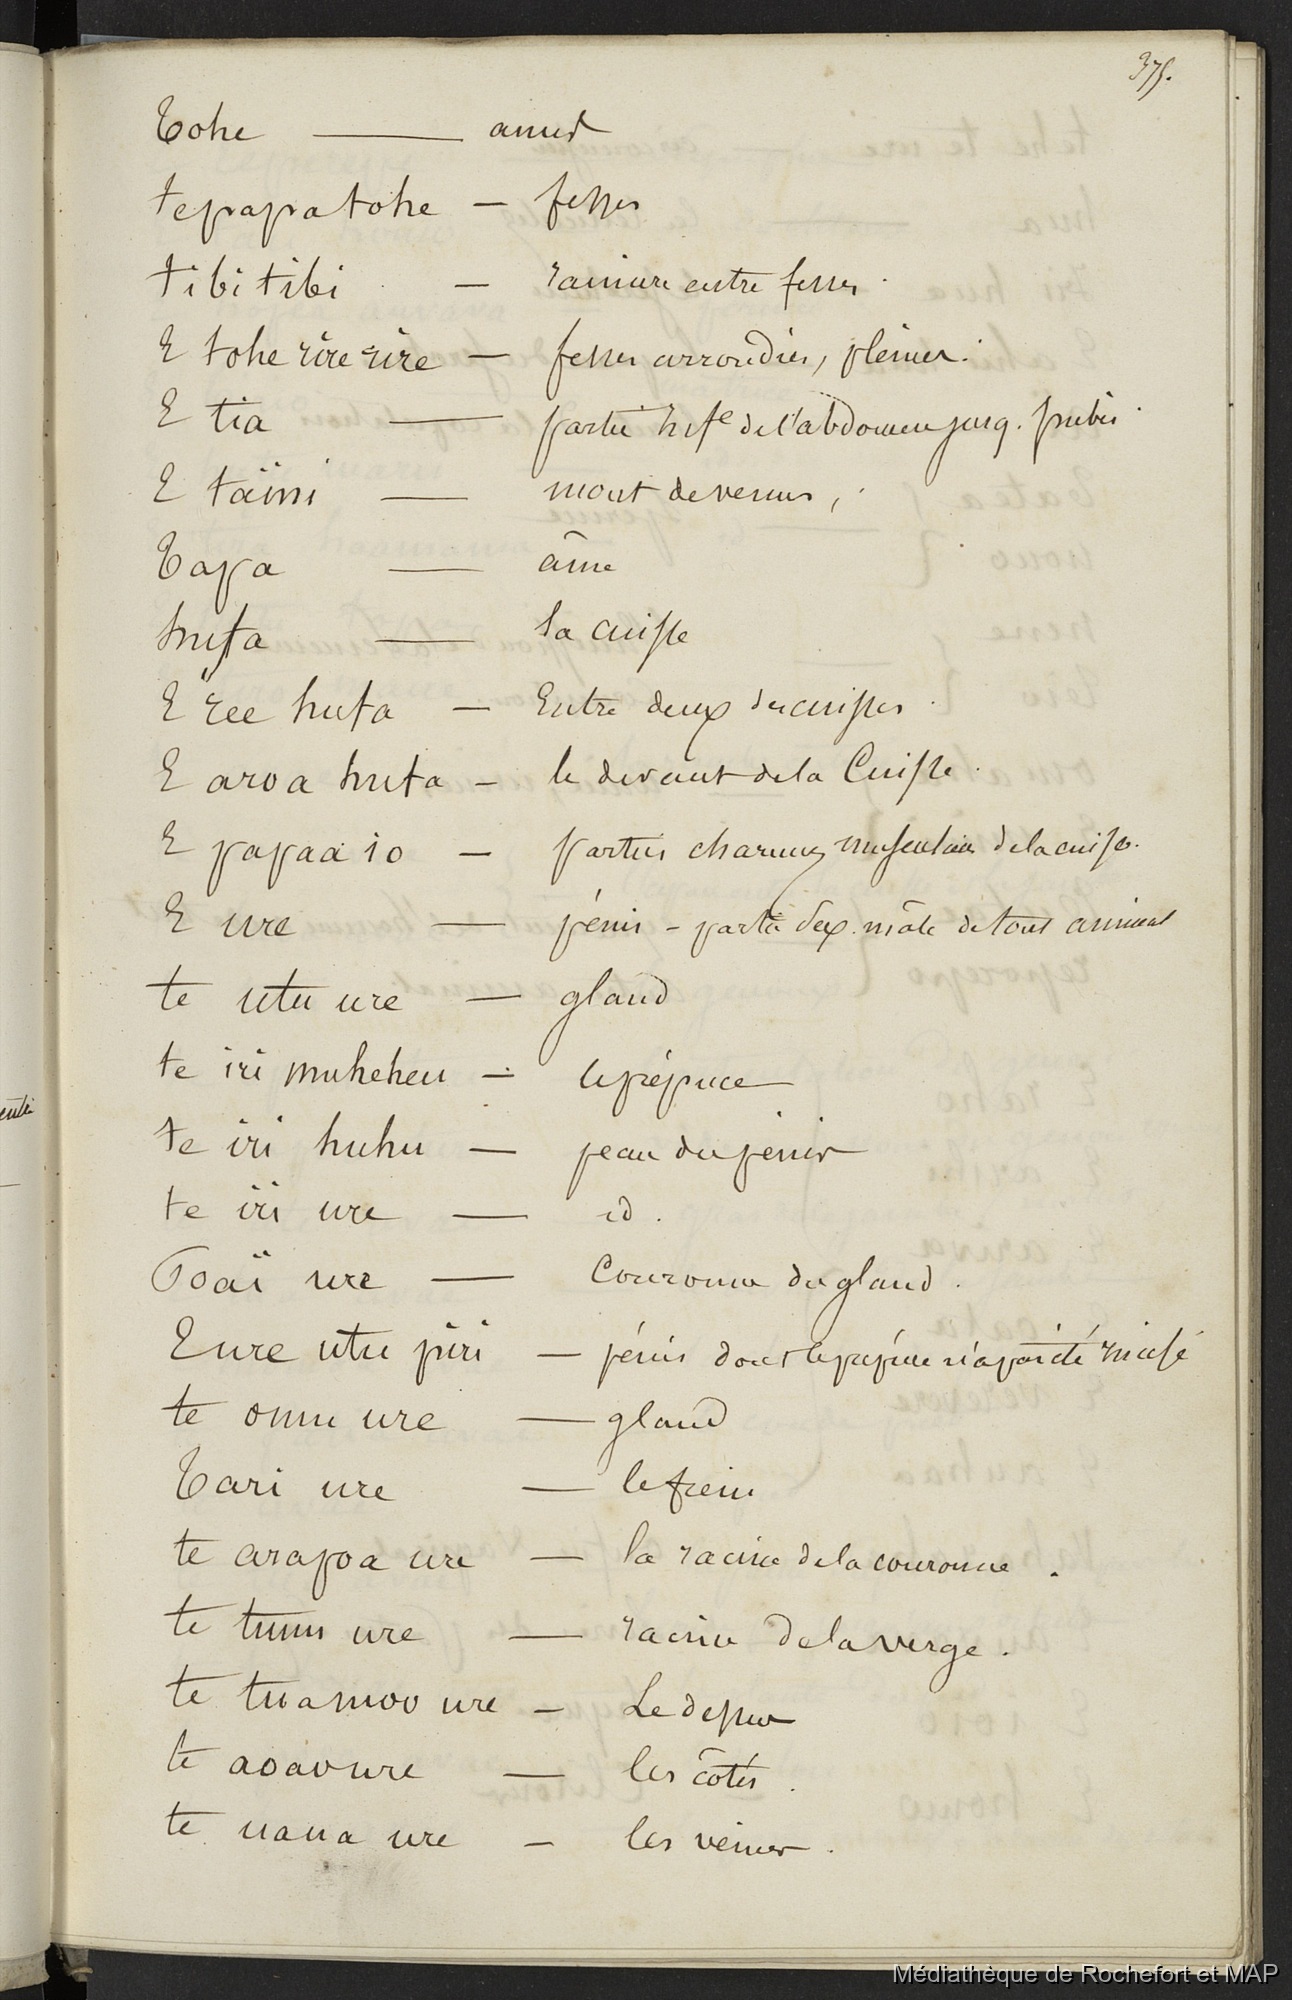 375.
Tohe — anus
tepapatohe — fesses
tibi tibi — rainure entre fesses.
E tohe rire rire — fesses arrondies, pleines.
E tia — partie infe de l'abdomen jusq. pubis.
E taïni — mont de venus,
Tapa — âine
hufa — la cuisse
E ree hufa — Entre deux des cuisses.
E aroa hufa — le devant de la Cuisse.
E papaa io — parties charnues musculaires de la cuisse.
E ure — pénis - partie sex. mâle de tout animal
te utu ure — gland
te iri muheheu — le prépuce
te iri huhu — peau du pénis
te iri ure — id.
Poaï ure — Couronne du gland.
E ure utu piri — pénis dont le prépuce n'a pas été incisé
te omu ure — gland
Tari ure — le frein
te arapoa ure — la racine de la couronne.
te tumu ure — racine de la verge.
te tuamoo ure — Le dessus
te aoao ure — les côtés.
te uaua ure — les veines.
Médiathèque de Rochefort et MAP